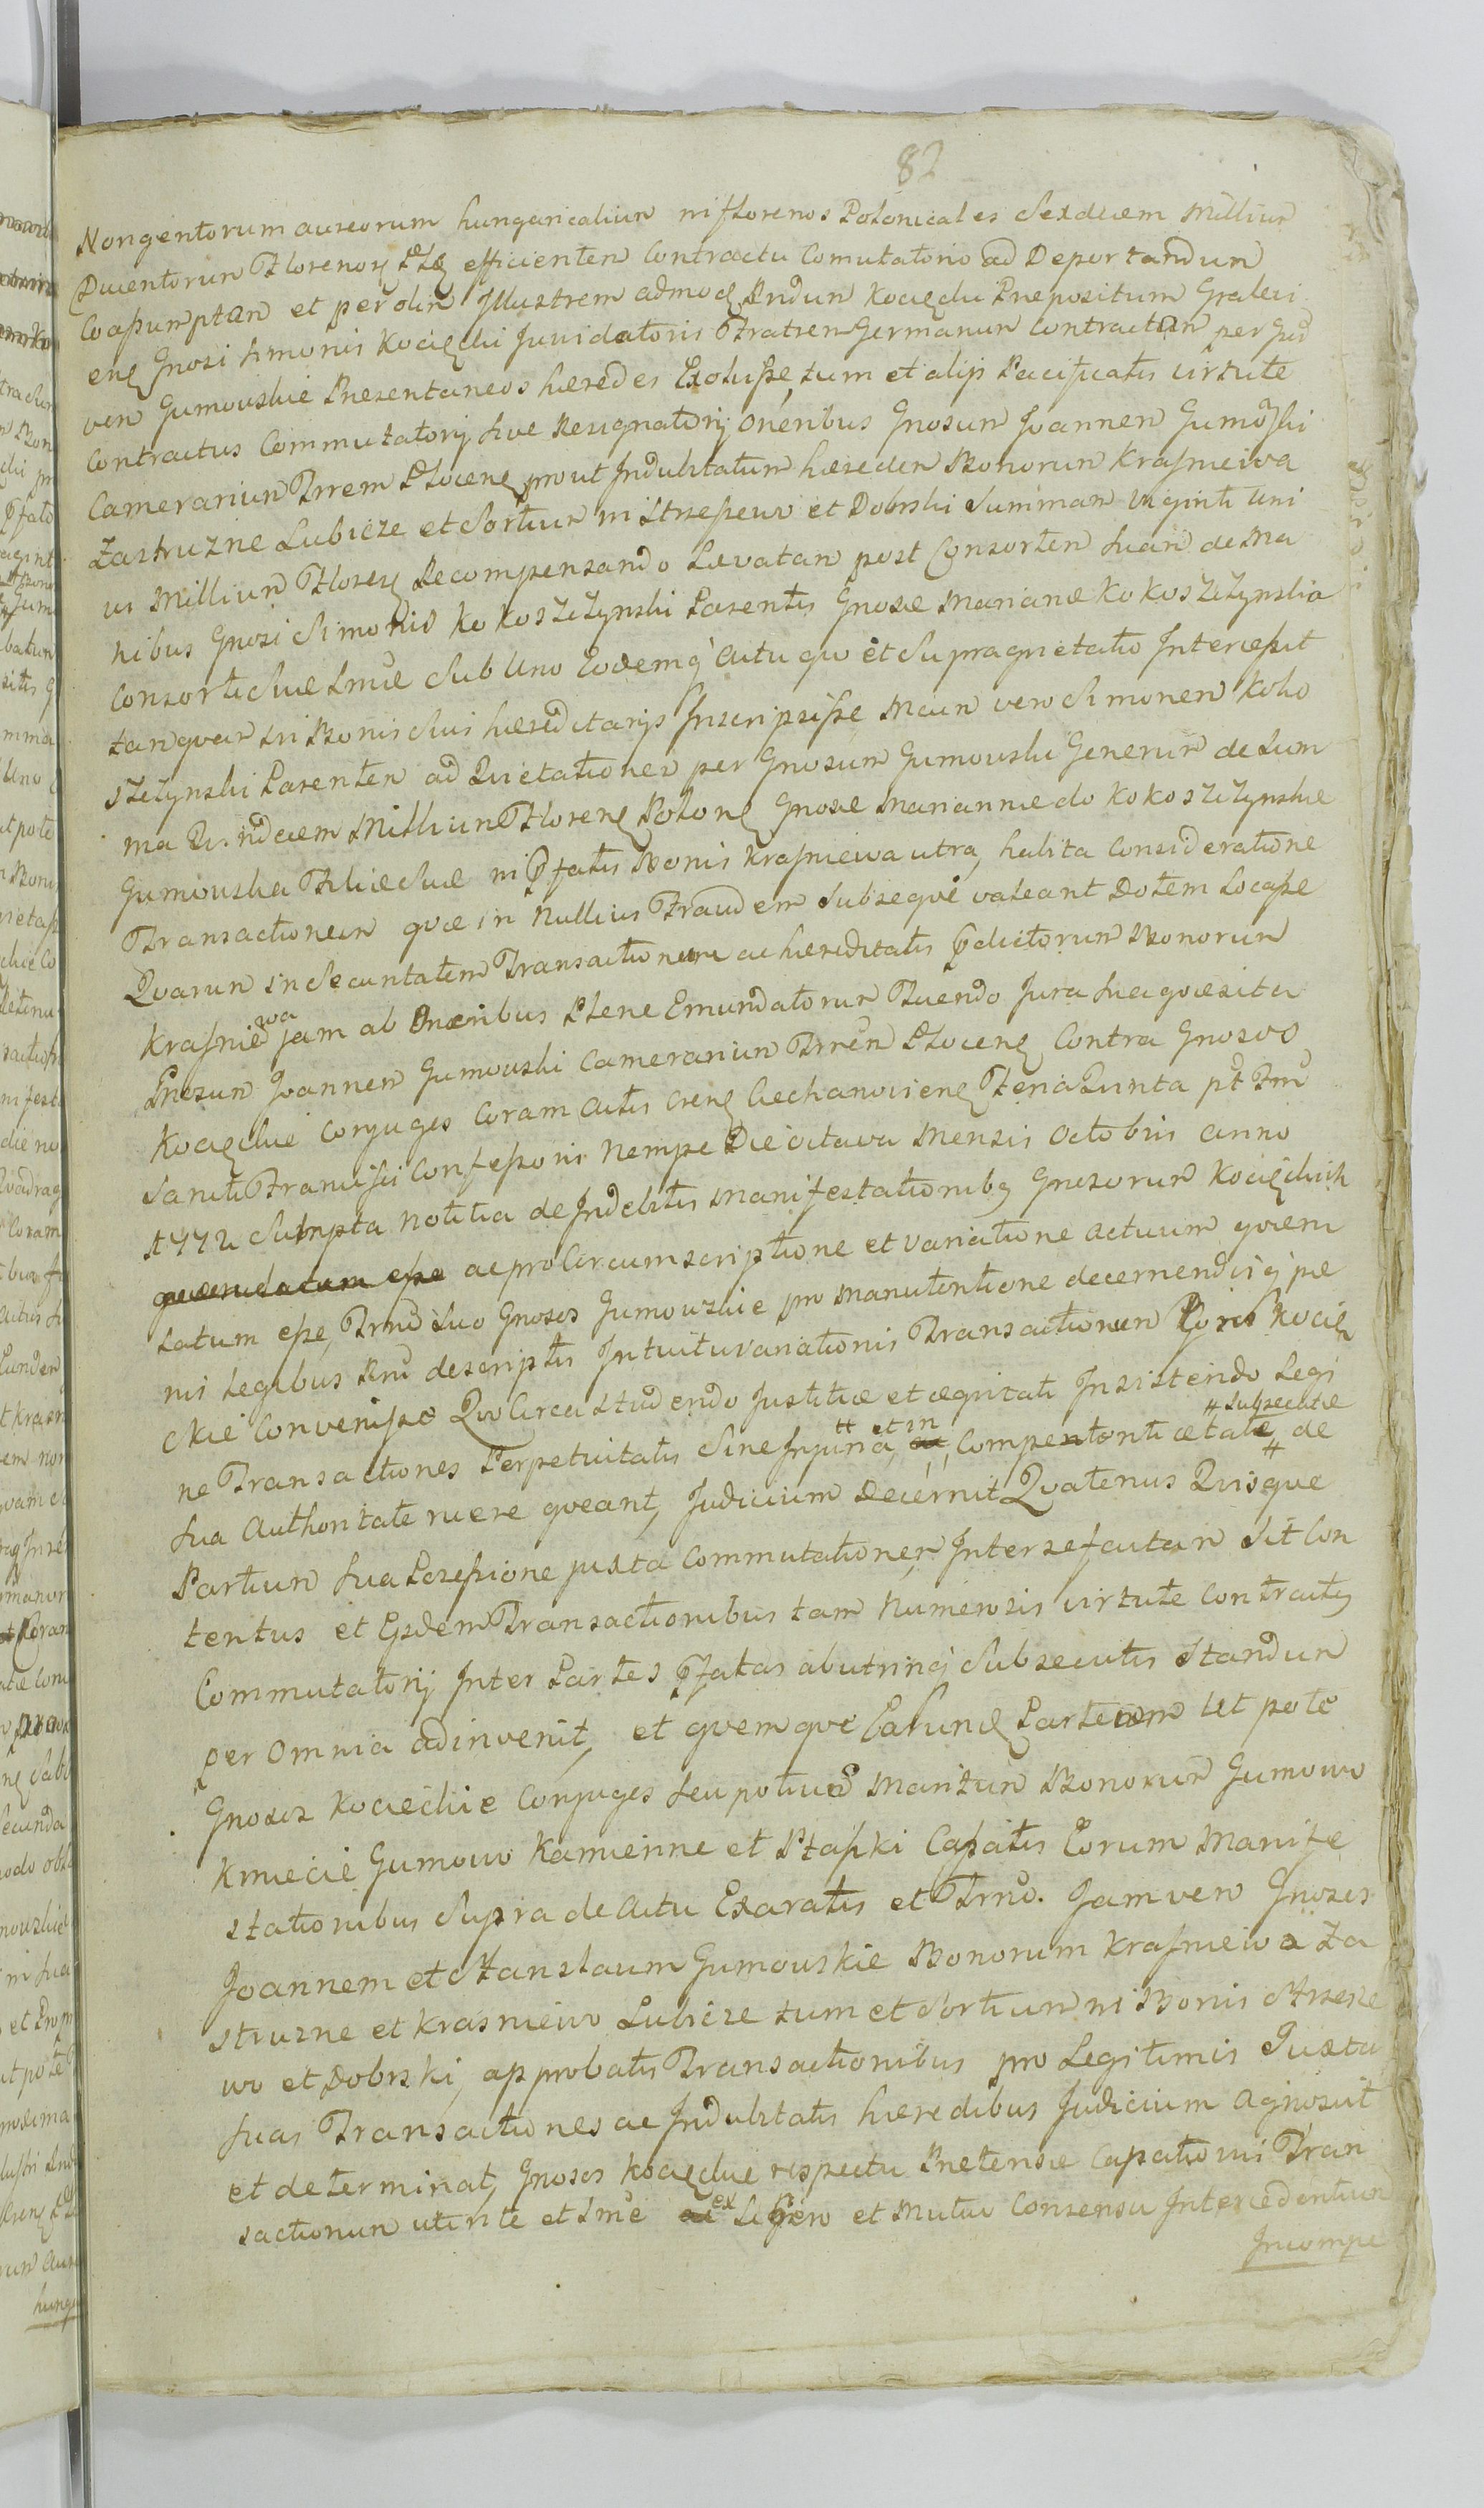 82
Nongentorum aureorum hungaricalium in florenos Polonicales Sexdecem Millium
Ducentorum Florenorum efficientem Contractu Comutatorio ad Deportandum
Coasumptam et per olim Illustrem admod Rndum Kocięcki Prepositum
Gnosi Simonis Kocięcki Fratrem Germanum Contractum per
Gumouskie Presentaneos hæredes Exoluisse, tum et alijs Pacificatis virtute
Contractus Commutatorij sive Resignatorij oneribus Gnosum Joannem Gumoski
Camerarium Trrem Plocenę prout Indubitatum hæredem Bonorum Krasniewa
Zastruzne Lubicze et Sortium in Strzeszewo et Dobrski Summam Viginti Uni
us Millium Recompensando Levatam post Consortem Suam de Ma
nibus Gnosi Simonis Kokoszczynski Parentis Gnosæ Marianæ Kokoszczynska
Consorti Suæ Sub Uno Eodemq Actu quo et Supra quietatio Intercessit
tanquam in Bonis Suis hæreditarijs Inscripsisse Mcum vero Simonem Koko
szczynski Parentem ad Quietationes per Gnosum Gumouski Generum de Sum
ma Quindecem Millium Florenę Polonę Gnosæ Mariannæ de Kokoszczynskie
Gumouska Filiæ Suæ in Pfatis Bonis Krasniewa utra, habita Consideratione
Transactionem quæ in Nullius Fraudem Subseque valeant Dotem Locasse
Quarum in Securitatem Transactionum ac hæreditatis pdictorum Bonorum
Krasniewa jam ab Oneribus Plene Emundatorum Tuendo Jura Sua quæsita
Gnosum Joannem Gumouski Camerarium Trrem Plocenę Contra Gnosos
Kocięckie Conjuges Coram Actis Ciechanoviens Feria Quinta pt Fm
Sancti Francisci Confessoris Nempe Die octava Mensis Octobris anno
1772 Sumpta Notitia de Indebitis Manifestationibq Gnosorum Kocięckich
ac pro Circumscriptione et variatione actuum quem
Latum esse, Trnd Suo Gnosos Gumouskie pro Manutentione decernendisq
nis Legibus descriptis Intuitu variationis Transactionum Kocię
ckie Convenisse Quo Circa Studendo Justitiæ et æquitati Insistendo Legi
ne Transactiones Perpetuitatis Sine Injuria, et in Competenti ætate # Subsecutæ # de
Sua Authoritate ruere queant, Judicium decernit Quatenus Quisque
Partium Sua Possessione juxta Commutationem Inter se factam Sit Con
tentus et Eisdem Transactionibus tam Numerosis virtute Contractus
Commutatorij Inter Partes Pfatas ab utrinq Subsecutis Standum
per Omnia adinvenit, et quemque Earund Partium Ut pote
Gnosos Kocieckie Conjuges Seu potius Maritum Bonorum Gumowo
Kmiecie Gumowo Kamienne et Ptaski Cassatis Eorum Manife
stationibus Supra de Actu Exaratis et Trnd. Jam vero Gnosos
Joannem et Stanslaum Gumouskie Bonorum Krasniewa Za
struzne et Krasniewo Lubicze tum et Sortium in Bonis Strzesze
wo et Dobrski, approbatis Transactionibus pro Legitimis Juxta
Suas Transactiones ac Indubitatis hæredibus Judicium Agnoscit
et determinat, Gnosos Kocięckie respectu Pretensæ Cassationis Tran
sactionum utrinte et ex Libero et Mutuo Consensu Intercedentium
Incompe